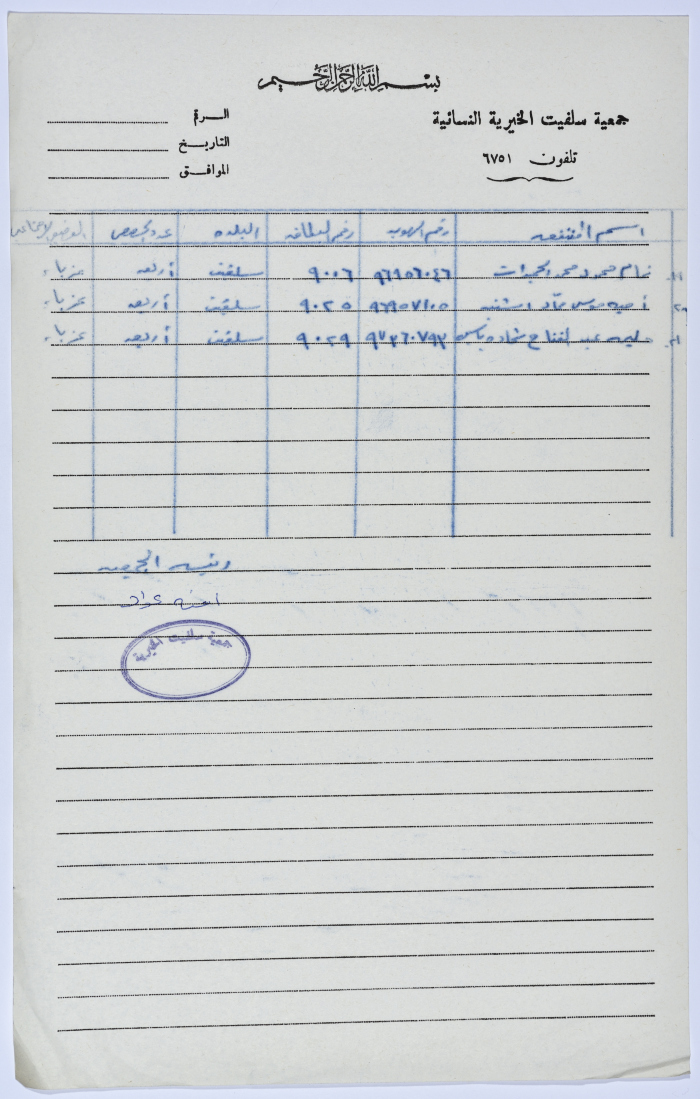 بسم الله الرحمن الرحيم
جمعية سلفيت الخيرية النسائية
تلفون ٦٧٥١
الرقم
التاريخ
الموافق
اسم المنتفعه رقم الهويه رقم البطاقه البلده عدد الحصص الوضع الاجتماعي
تمام محمود محمد ٩٦٩٥٦٠٤٦ ٩٠٠٦ سلفيت أربعه عزباء
موسى ٩٦٩٥٧١٠٥ ٩٠٢٥ سلفيت أربعه عزباء
حليمه عبد الفتاح شحاده ياسين ٩٧٣٦٠٧٩٣ ٩٠٢٩ سلفيت أربعه عزباء
رئيسة الجمعيه
امنه عواد
جمعية سلفيت الخيرية